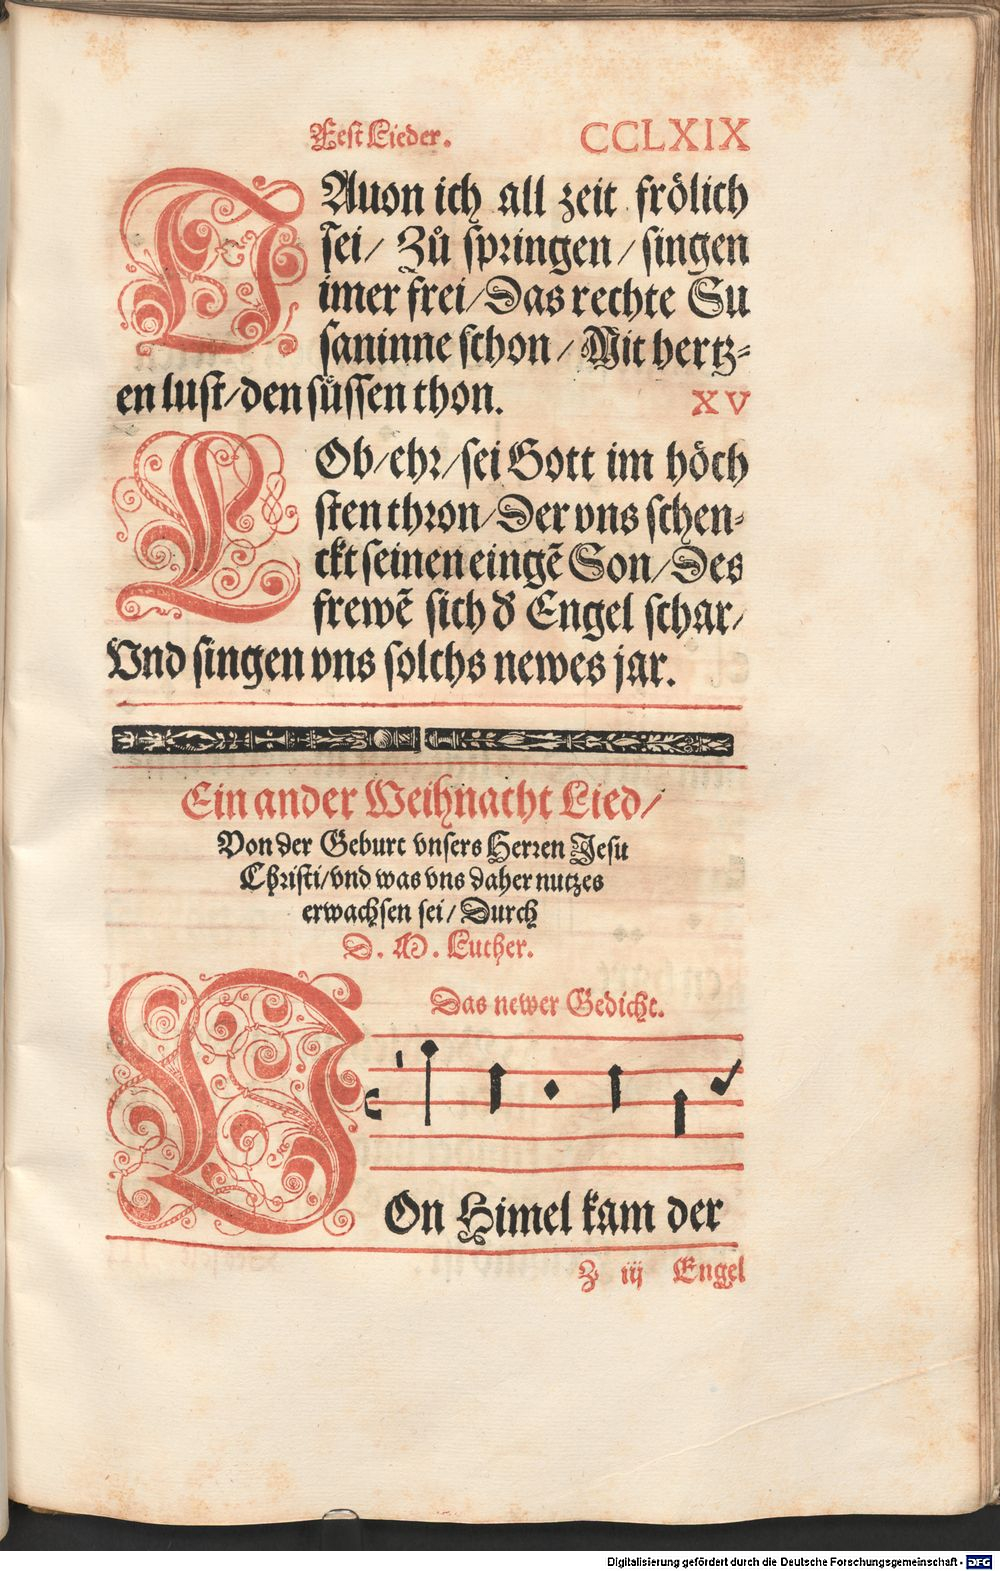 Fest Lieder. CCLXIX
DAuon ich all zeit frölich
sei/ Zů springen/ singen
imer frei/ Das rechte Su
saninne schon/ Mit hertz-
en lust/ den süssen thon. XV
LOb/ ehr/ sei Gott im höch
sten thron/ Der vns schen-
ckt seinen eingẽ Son/ Des
frewẽ sich d' Engel schar/
Vnd singen vns solchs newes jar.
Ein ander Weihnacht Lied/
Von der Geburt vnsers Herren Jesu
Christi/ vnd was vns daher nutzes
erwachsen sei/ Durch
D. M. Luther.
Das newer Gedicht.
VOn Himel kam der
Z iij Engel
Digitalisierung gefördert durch die Deutsche Forschungsgemeinschaft - DFG